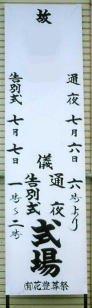 故
儀
通夜 七月六日 六時より
告別式 七月七日 一時〜二時
通夜
告別式
式場
㈲花豊葬祭